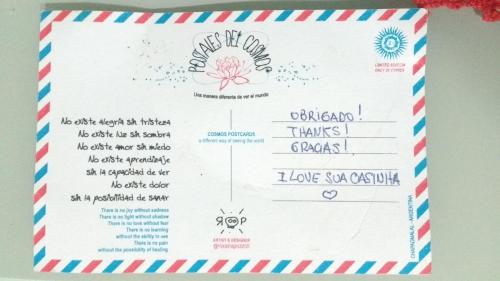 POSTALES DEL COSMOS
Una manera diferente de ver el mundo
LIMITED EDITION
No existe alegría sin tristeza
No existe luz sin sombra
No existe amor sin miedo
No existe aprendizaje
sin la capacidad de ver
No existe dolor
sin la posibilidad de sanar
There is no joy without sadness
There is no light without shadow
There is no love without fear
There is no learning
without the ability to see
There is no pain
without the possibility of healing
COSMOS POSTCARDS
a different way of seeing the world
ARTIST & DESIGNER
OBRIGADO!
THANKS!
GRACIAS!
I LOVE SUA CASINHA
CHAPADMALAL - ARGENTINA